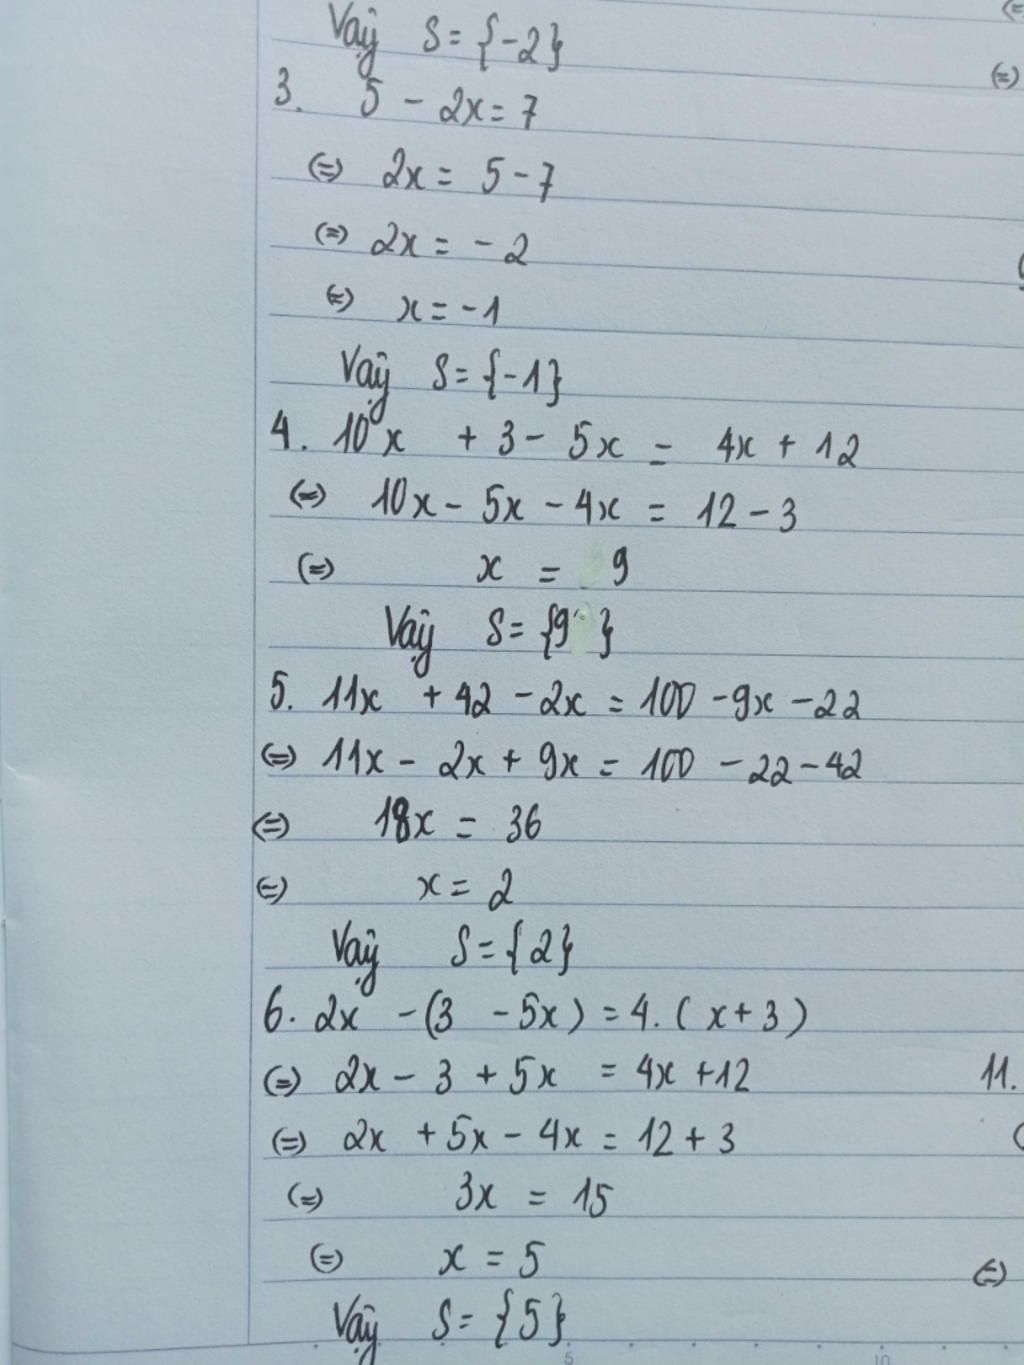 Vậy S = {-2}
3. 5 - 2x = 7
(=) 2x = 5 - 7
(=) 2x = - 2
(=) x = - 1
Vậy S = {-1}
4. 10x + 3 - 5x = 4x + 12
(=) 10x - 5x - 4x = 12 - 3
(=) x = 9
Vậy S = {9}
5. 11x + 42 - 2x = 100 - 9x - 22
(=) 11x - 2x + 9x = 100 - 22 - 42
(=) 18x = 36
(=) x = 2
Vậy S = {2}
6. 2x - (3 - 5x) = 4. (x + 3)
(=) 2x - 3 + 5x = 4x + 12
(=) 2x + 5x - 4x = 12 + 3
(=) 3x = 15
(=) x = 5
Vậy S = {5}
(=)
11.
(=)
5 10